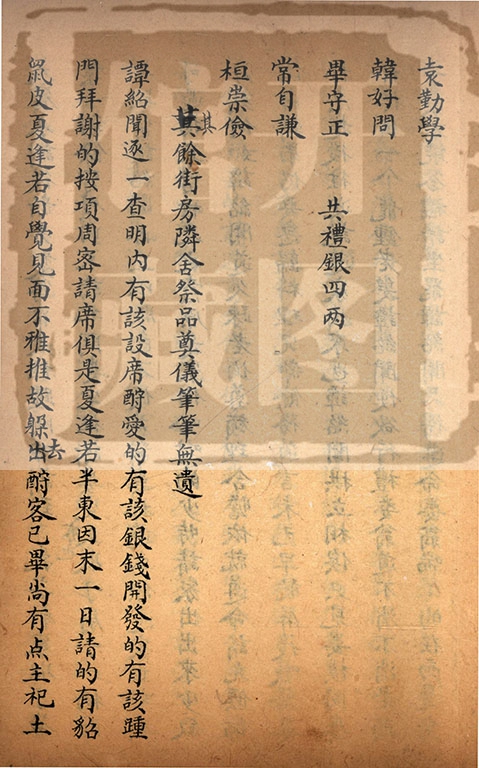 袁勤學
韓好問
畢守正　共禮銀四两
常自謙
桓崇儉
其餘街房隣舍祭品奠儀筆筆無遺
其
譚紹聞逐一查明内有該設席酧愛的有該銀錢開發的有該踵
門拜謝的按項周宻請席俱是夏逢若半東因末一日請的有貂
鼠皮夏逢若自覺見面不雅推故躲出去酧客已畢尚有点主祀土